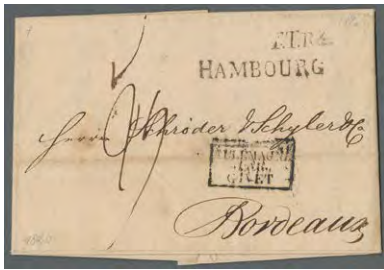 T.T.R.4.
HAMBOURG
Herren Schröder & Schyler & Co
ALLEMAGNE
PAR
GIVET
Bordeaux